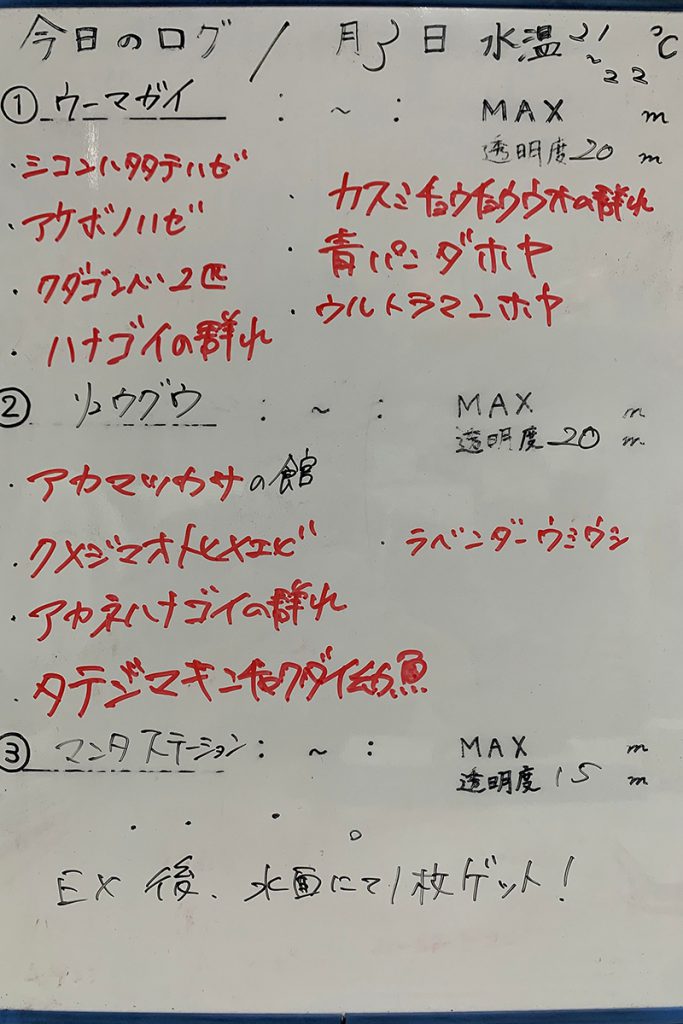 今日のログ 1月3日 水温21~22℃
① ウーマガイ : ~ : MAX m
透明度20m
・シコンハタタテハゼ
・アケボノハゼ
・クダゴンベ 2匹
・ハナゴイの群れ
・カスミチョウチョウウオの群れ
・青パンダホヤ
・ウルトラマンホヤ
② リュウグウ : ~ : MAX m
透明度20m
・アカマツカサの館
・クメジマオトヒメエビ
・アカネハナゴイの群れ
・タテジマキンチャクダイ幼魚
・ラベンダーウミウシ
③ マンタステーション : ~ : MAX m
透明度15m
・・・。
EX後、水面にて1枚ゲット!